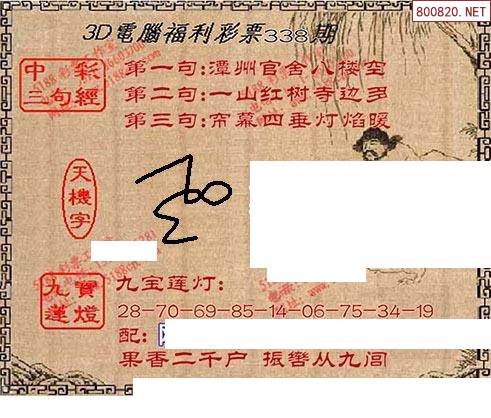 800820.NET
3D電腦福利彩票338期
中彩
三句經
第一句:潭州官舍八楼空
第二句:一山红树寺边多
第三句:帘幕四垂灯焰暖
天機字
九寶
蓮燈
九宝莲灯:
28-70-69-85-14-06-75-34-19
配:
果香二千户 振辔从九闾